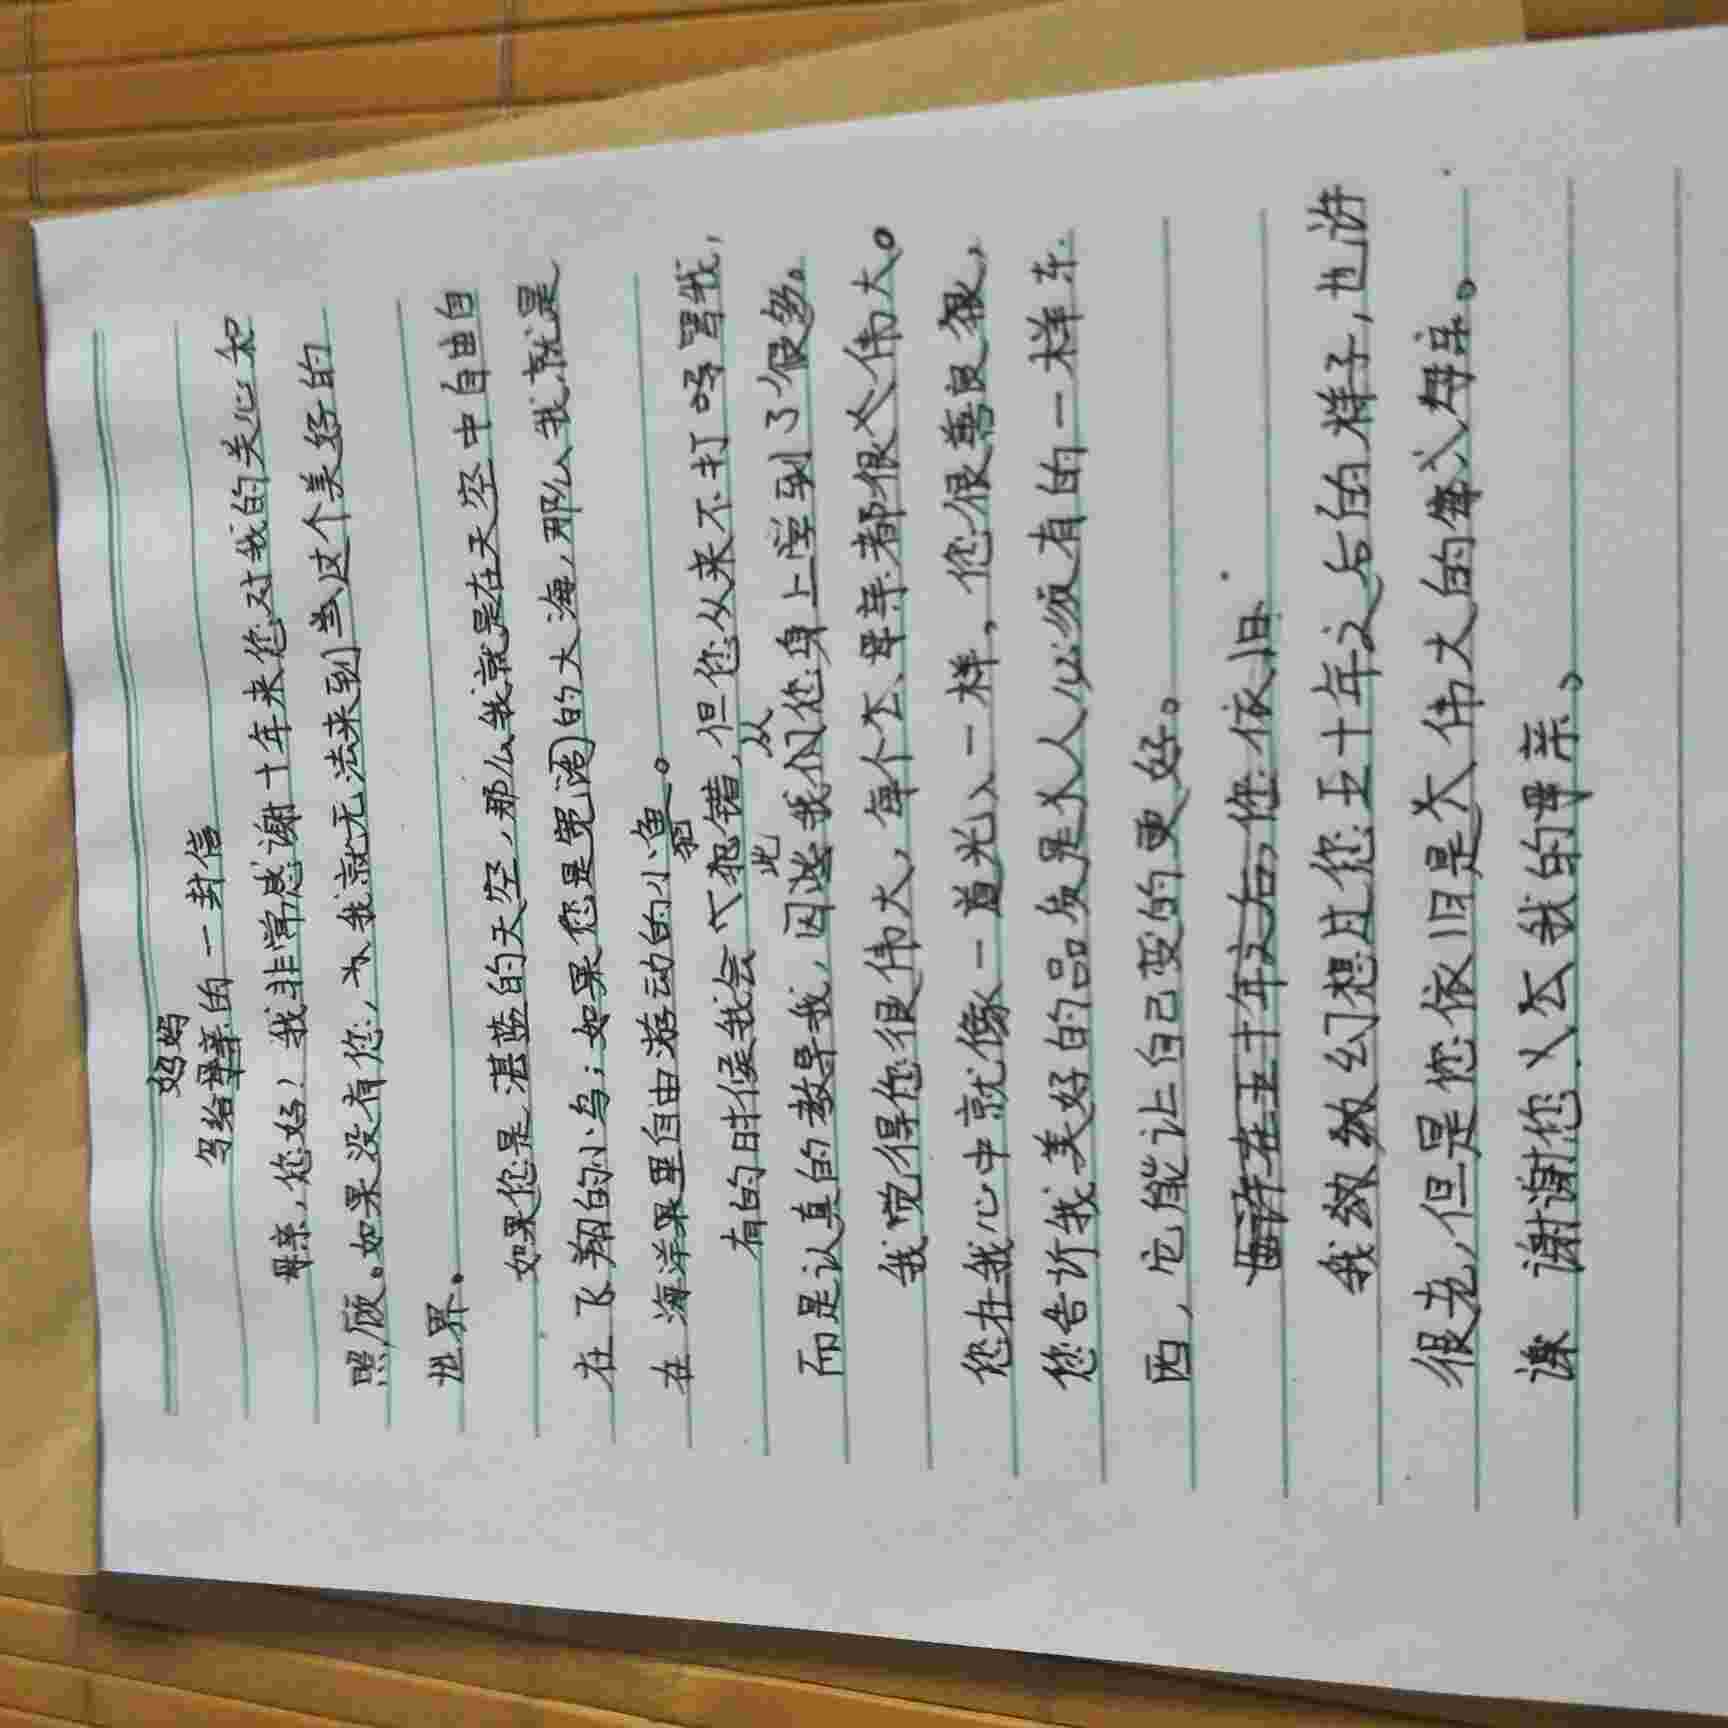 写给妈妈的一封信
母亲，您好！我非常感谢十年来您对我的关心和
照顾。如果没有您，我就无法来到这个美好的
世界。
如果您是湛蓝的天空，那么我就是在天空中自由自
在飞翔的小鸟；如果您是宽阔的大海，那么我就是
在海洋里自由游动的小鱼。
有的时候我会犯错，但您从来不打骂我，
而是认真的教导我，因此我从您身上学到了很多。
我觉得您很伟大，每个母亲都很伟大。
您在我心中就像一道光一样，您很善良很，
您告诉我美好的品质是人人必须有的一样东
西，它能让自己变的更好。
我幻想过您五十年之后的样子，也许
很老，但是您依旧是伟大的母亲。
谢谢您我的母亲。